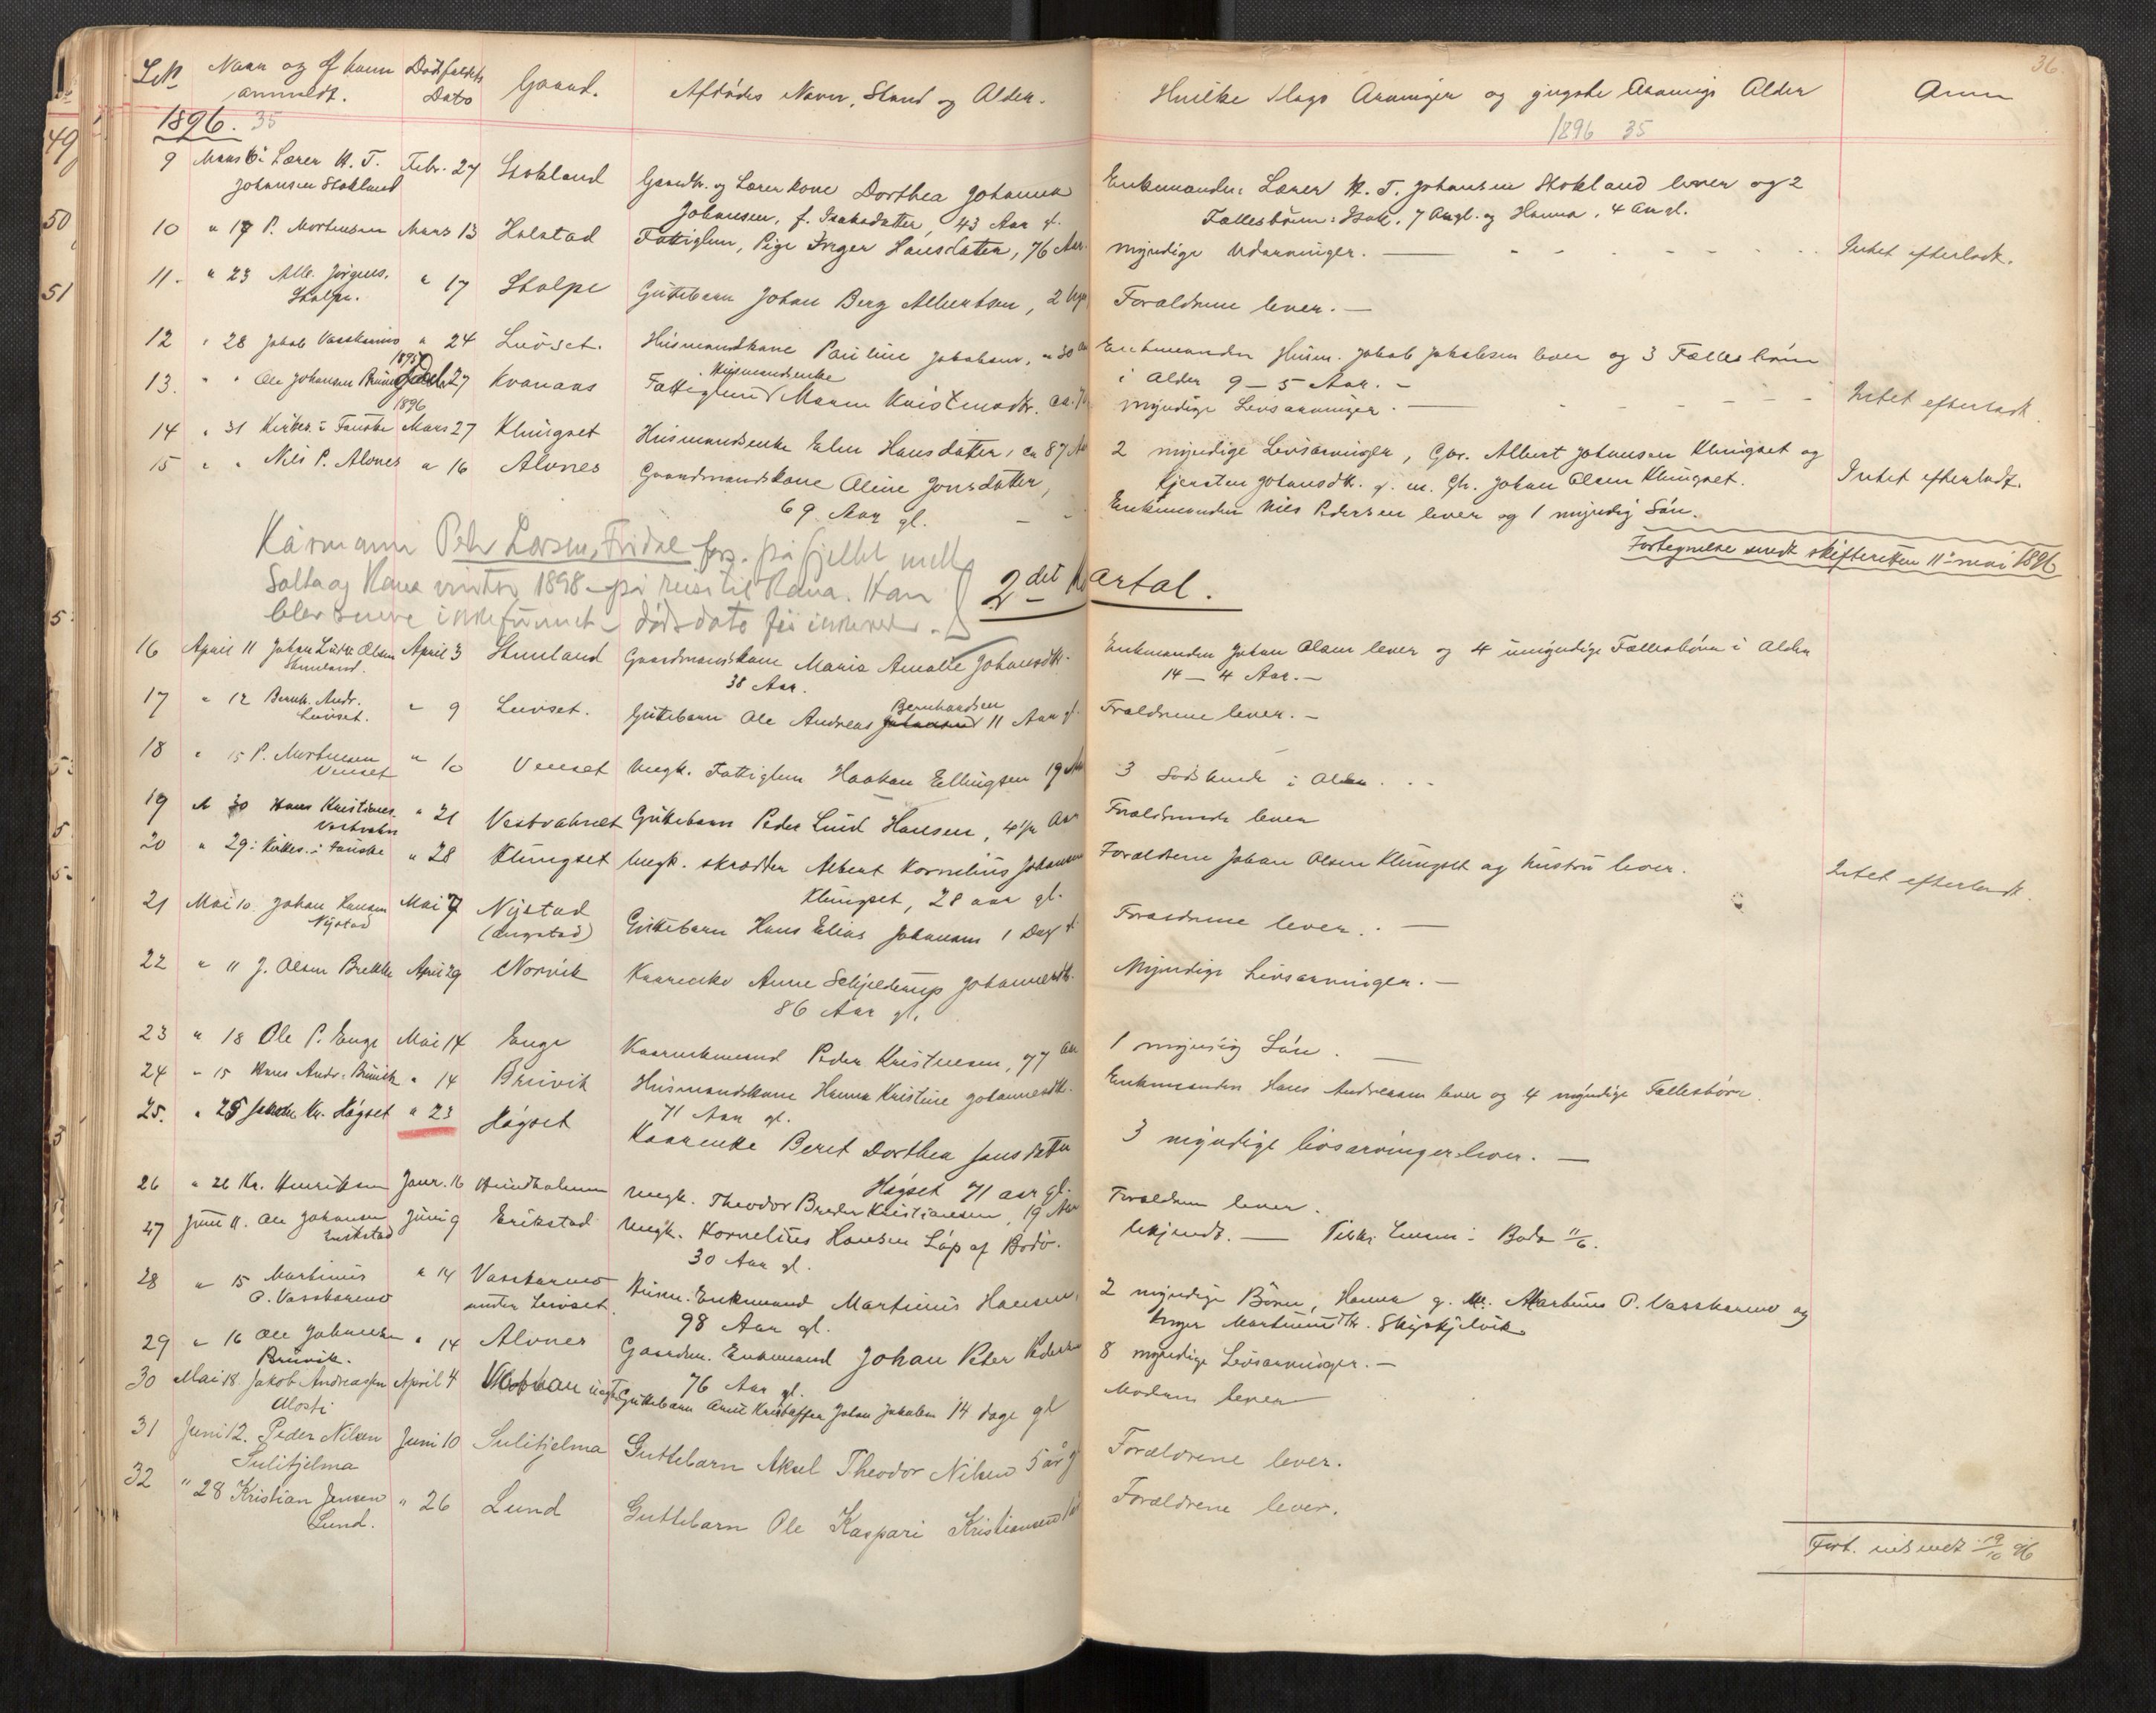 36.
LN Navn og af hvem Dödsfaldets Gaard. Afdödes Navn, Stand og Alder. Hvilke Slags Arvinger og yngste Arvings Alder Anm
anmeldt. Dato
1896. 35 1896 35
9 Mars 6 Lærer K. T. Febr. 27 Stokland Gaardbr. og Lærerkone Dorthea Johanna Enkemanden Lærer K. T. Johansen Stokland lever og 2
Johansen Stokland Johansen, f. Isaksdatter, 43 Aar gl. Fællesbörn: Isak, 7 Aar gl. og Hanna, 4 Aar gl.
10 " 17 P. Mortensen Mars 13 Holstad Fattiglem, Pige Inger Hansdatter, 76 Aar. myndige Udarvinger. — Intet efterladt.
11. " 23 Alb. Jörgens. " 17 Stolpe Guttebarn Johan Berg Albertsen, 2 Forældrene lever. —
Stolpe.
12 " 28 Jakob Vasskarmo " 24 Leivset. Husmandskone Pauline Jakobsen, " 30 Enkemanden Husm. Jakob Jakobsen lever og 3 Fællesbörn
i Alder 9 – 5 Aar. –
1895 Husmandsenke
13. " " Ole Johansen 27 Kvanaas Fattiglem Maren Kristensdtr. ca. 7 myndige Livsarvinger. — Intet efterladt.
1896
14 " 31 Kirkes. i Fauske Mars 27 Klungset Husmandsenke Elen Hansdatter, ca 87 Aar 2 myndige Livsarvinger, Gbr. Albert Johansen Klungset og
Kjersten Johansdtr. g. m. Gbr. Johan Olsen Klungset. Intet efterladt.
15 " " Nils P. Alvnes " 16 Alvnes Gaardmandskone Oline Jonsdatter, Enkemanden Nils Pedersen lever og 1 myndig Sön.
69 Aar gl.
Fortegnelse sendt skifteretten 11 mai 1896
Kårmann Peter Larsen, Fridal fors. på fjellet mell.
Salta og Rana vinter 1898 – på reise til Rana. Han
blev senere ikke funnet – dödsdato
2det Kvartal.
16 April 11 Johan Ludv. Olsen April 3 Stemland Gaardmandskone Maria Amalie Johansdtr. Enkemanden Johan Olsen lever og 4 umyndige Fællesbörn i Alder
Stemland. 38 Aar. 14 – 4 Aar. –
Bernhardsen
17 " 12 Bernh. Andr. " 9 Leivset. Guttebarn Ole Andreas Johansen 11 Aar gl. Forældrene lever. –
Leivset.
18 " 15 P. Mortensen " 10 Venset Ungk. Fattiglem Haakon Ellingsen 19 Aar 3 Södskende i Alder . . -
Venset
19 A 30 Hans Kristians. " 21 Vestvatnet Guttebarn Peder Lund Hansen, 4 1/2 Aar Forældrende lever
Vestvatn
20 " 29: Kirkes. i Fauske " 28 Klungset Ungk. skrædder Albert Kornelius Johansen Forældrene Johan Olsen Klungset og hustru lever. Intet efterladt.
Klungset, 28 aar gl.
21 Mai 10 Johan Hansen Mai 7 Nystad Guttebarn Hans Elias Johansen 1 Dag gl Forældrene lever. . —
Nystad (Engstad)
22 " 11 J. Olsen Brekke April 29 Norvik Kaarenke Anne Schjelderup Johannesdtr. Myndige Livsarvinger. –
86 Aar gl.
23 " 18 Ole P. Enge Mai 14 Enge Kaarenkemand Peder Kristensen, 77 Aar 1 myndig Sön. —
24 " 15 Hans Andr. Bruvik " 14 Bruvik Husmandskone Hanna Kristine Johannesdtr. Enkemanden Hans Andreasen lever og 4 myndige Fællesbörn.
71 Aar gl.
25. " 25 Jakob Kr. Högset " 23 Högset Kaarenke Beret Dorthea Jensdatter 3 myndige livsarvinger lever. —
Högset 71 aar gl.
26 " 26 Kr. Henriksen Janr. 16 Hundholmen Ungk. Theodor Breder Kristiansen, 19 Aar Forældrene lever.
27 Juni 11. Ole Johansen Juni 9 Erikstad Ungk. Kornelius Hansen Löp af Bodö. Ukjendt. — i Bodö 11/6.
Erikstad 30 Aar gl.
28 " 15 Martinus " 14 Vasskarmo Husm. Enkemand Martinus Hansen, 2 myndige Börn, Hanna g. m. Martinus P. Vasskarmo og
P. Vasskarmo under Leivset. 98 Aar gl. Inger Martinusdtr. Skjevskjelvik
29 " 16 Ole Johansen " 14 Alvnes Gaardm. Enkemand Johan Peter Pedersen 8 myndige Livsarvinger. –
Bruvik. 76 Aar gl.
30 Mai 18 Jakob Andreassen April 4 Guttebarn Arnt Kristoffer Johan Jakobsen 14 dage gl Moderen lever
31 Juni 12. Peder Nilsen Juni 10 Sulitjelma Guttebarn Aksel Theodor Nilsen 5 år g Forældrene lever.
Sulitjelma
32 " 28 Kristian Jensen " 26 Lund Guttebarn Ole Kaspari Kristiansen Forældrene lever.
Lund.
Fort. indsendt 19/10 96
49
50
51